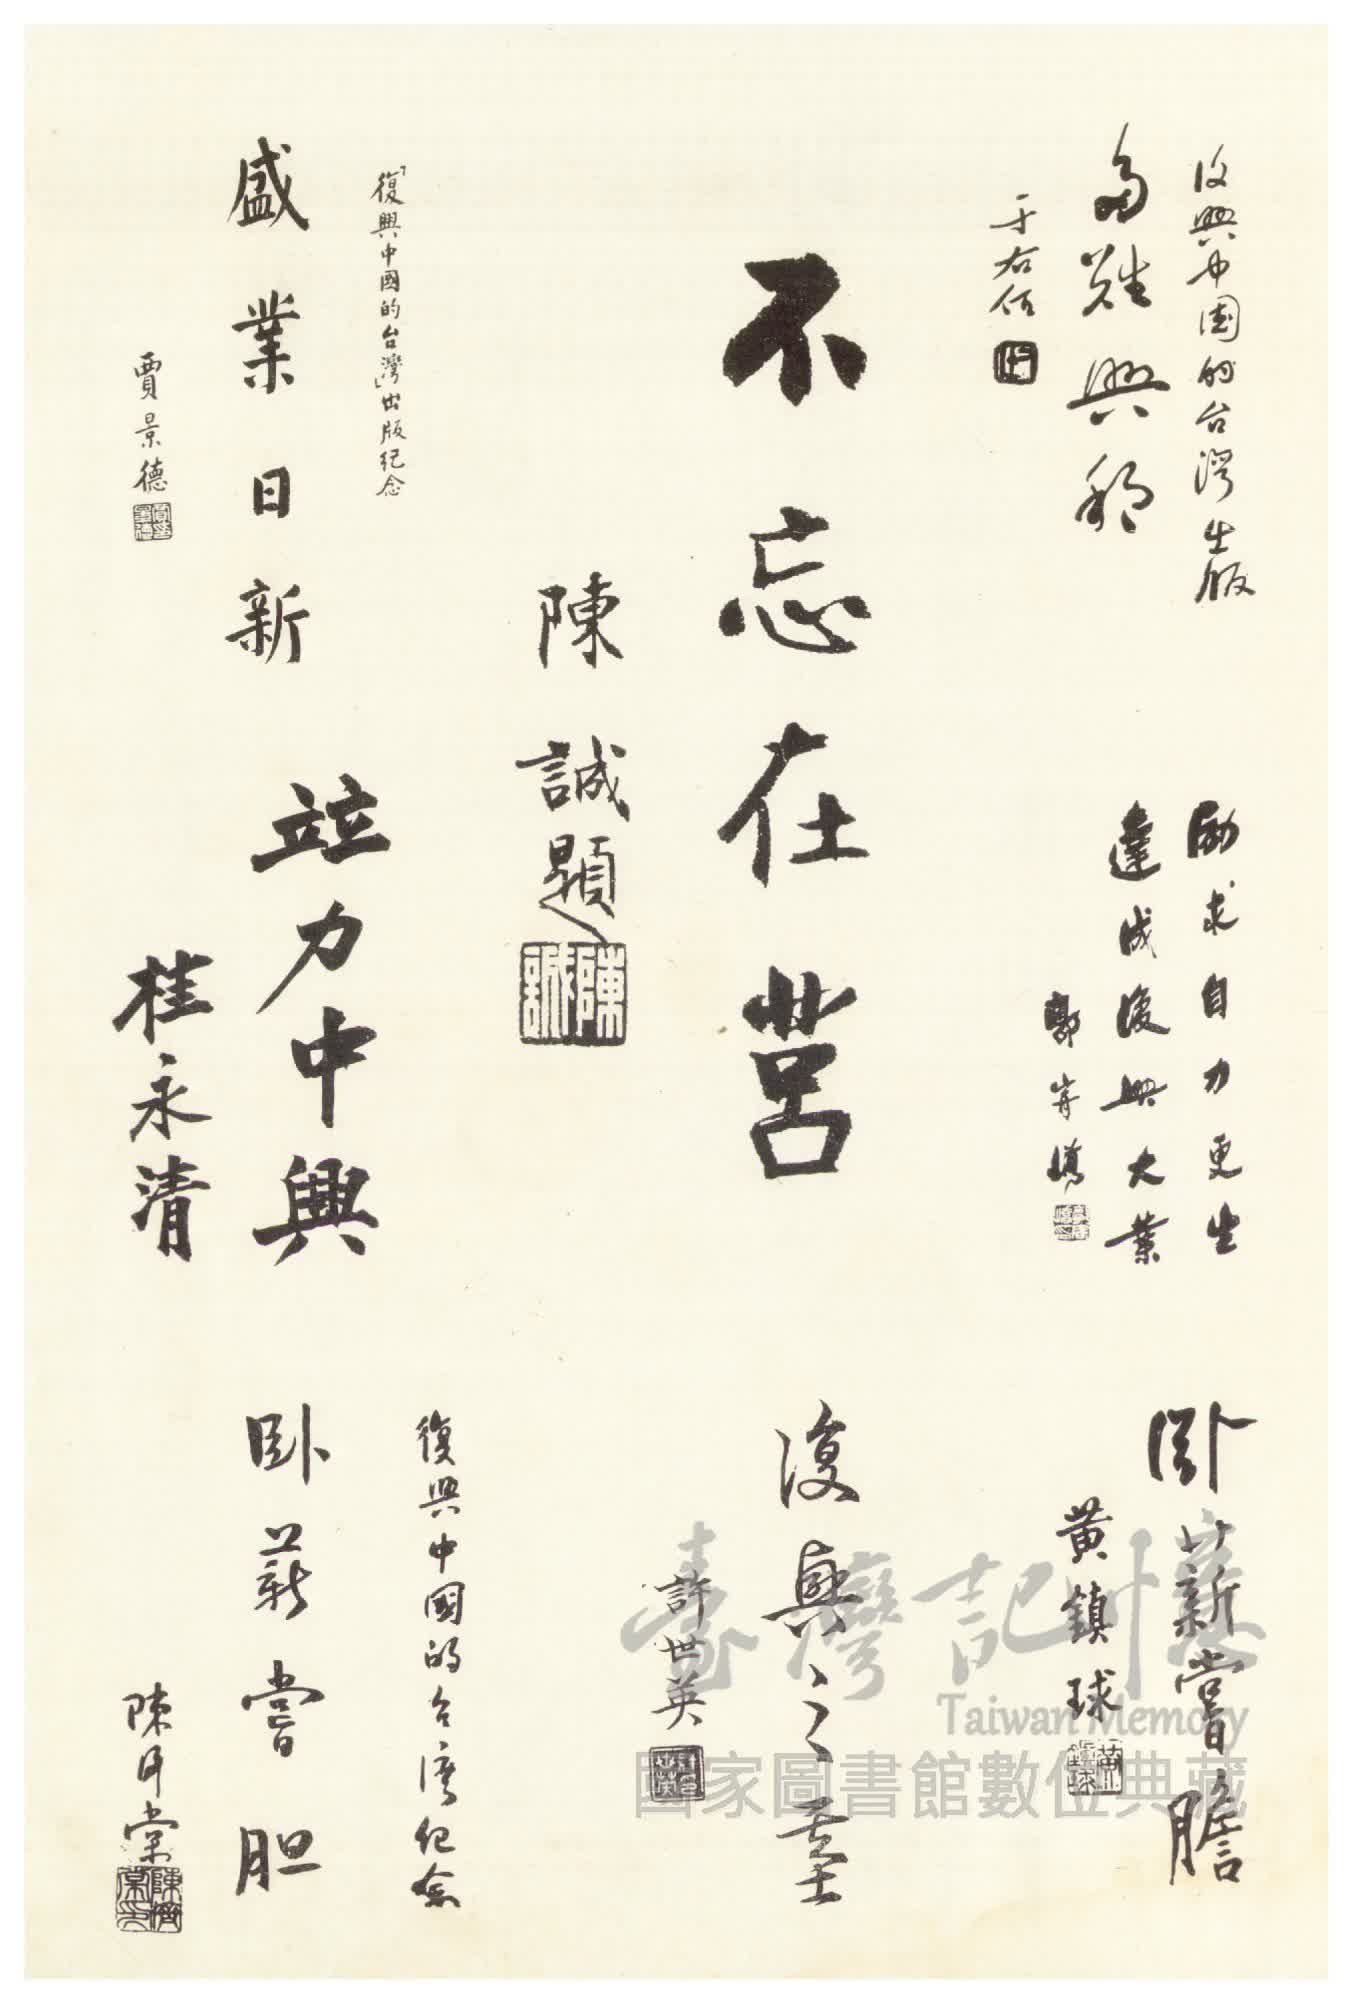 復興中國的台灣出版
多難興邦
于右任
勵求自力更生
達成復興大業
郭寄嶠
臥薪嘗膽
黃鎮球
不忘在莒
陳誠題
陳誠
復興之基
許世英
「復興中國的台灣」出版紀念
盛業日新
賈景德
竝力中興
桂永清
復興中國的台灣紀念
臥薪嘗胆
陳濟棠
臺灣記憶
Taiwan Memory
國家圖書館數位典藏